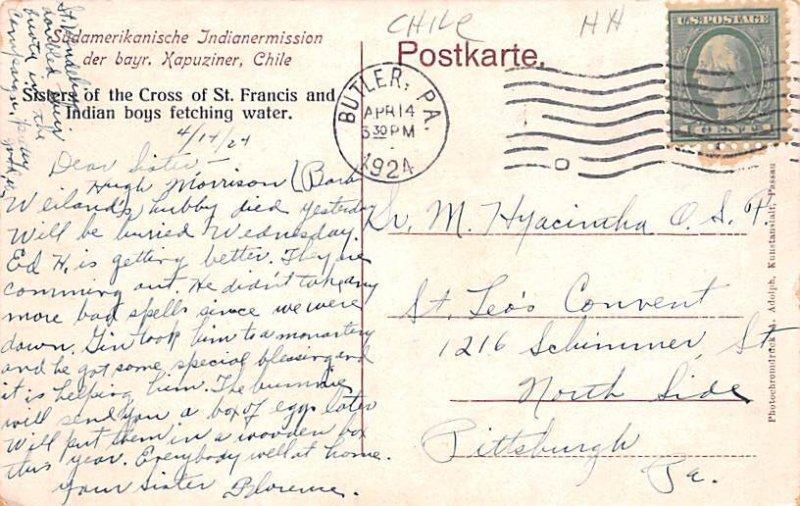 CHILE
HH
Südamerikanische Indianermission
der bayr. Kapuziner, Chile
Postkarte.
U.S. POSTAGE
Sisters of the Cross of St. Francis and
Indian boys fetching water.
BUTLER, PA.
APR 14
5 30 PM
1924
4/14/24
Dear Sister—
Hugh Morrison (Barb
Weiland's hubby died yesterday
Will be buried Wednesday.
Ed H. is getting better. They're
comming out. He didn't take any
more bad spells since we were
down. Gin took him to a monastery
and he got some special blessing and
it is helping him. The bunnies
will send you a box of eggs later
Will put them in a wooden box
this year. Everybody well at home.
your sister Florence.
Sr. M. Hyacintha O. S. F.
St. Leo's Convent
1216 Schimmer St
North Side
Pittsburgh
Pa.
Photochromdruck v. Adolph, Kunstanstalt, Passau
doubled their
quota in the